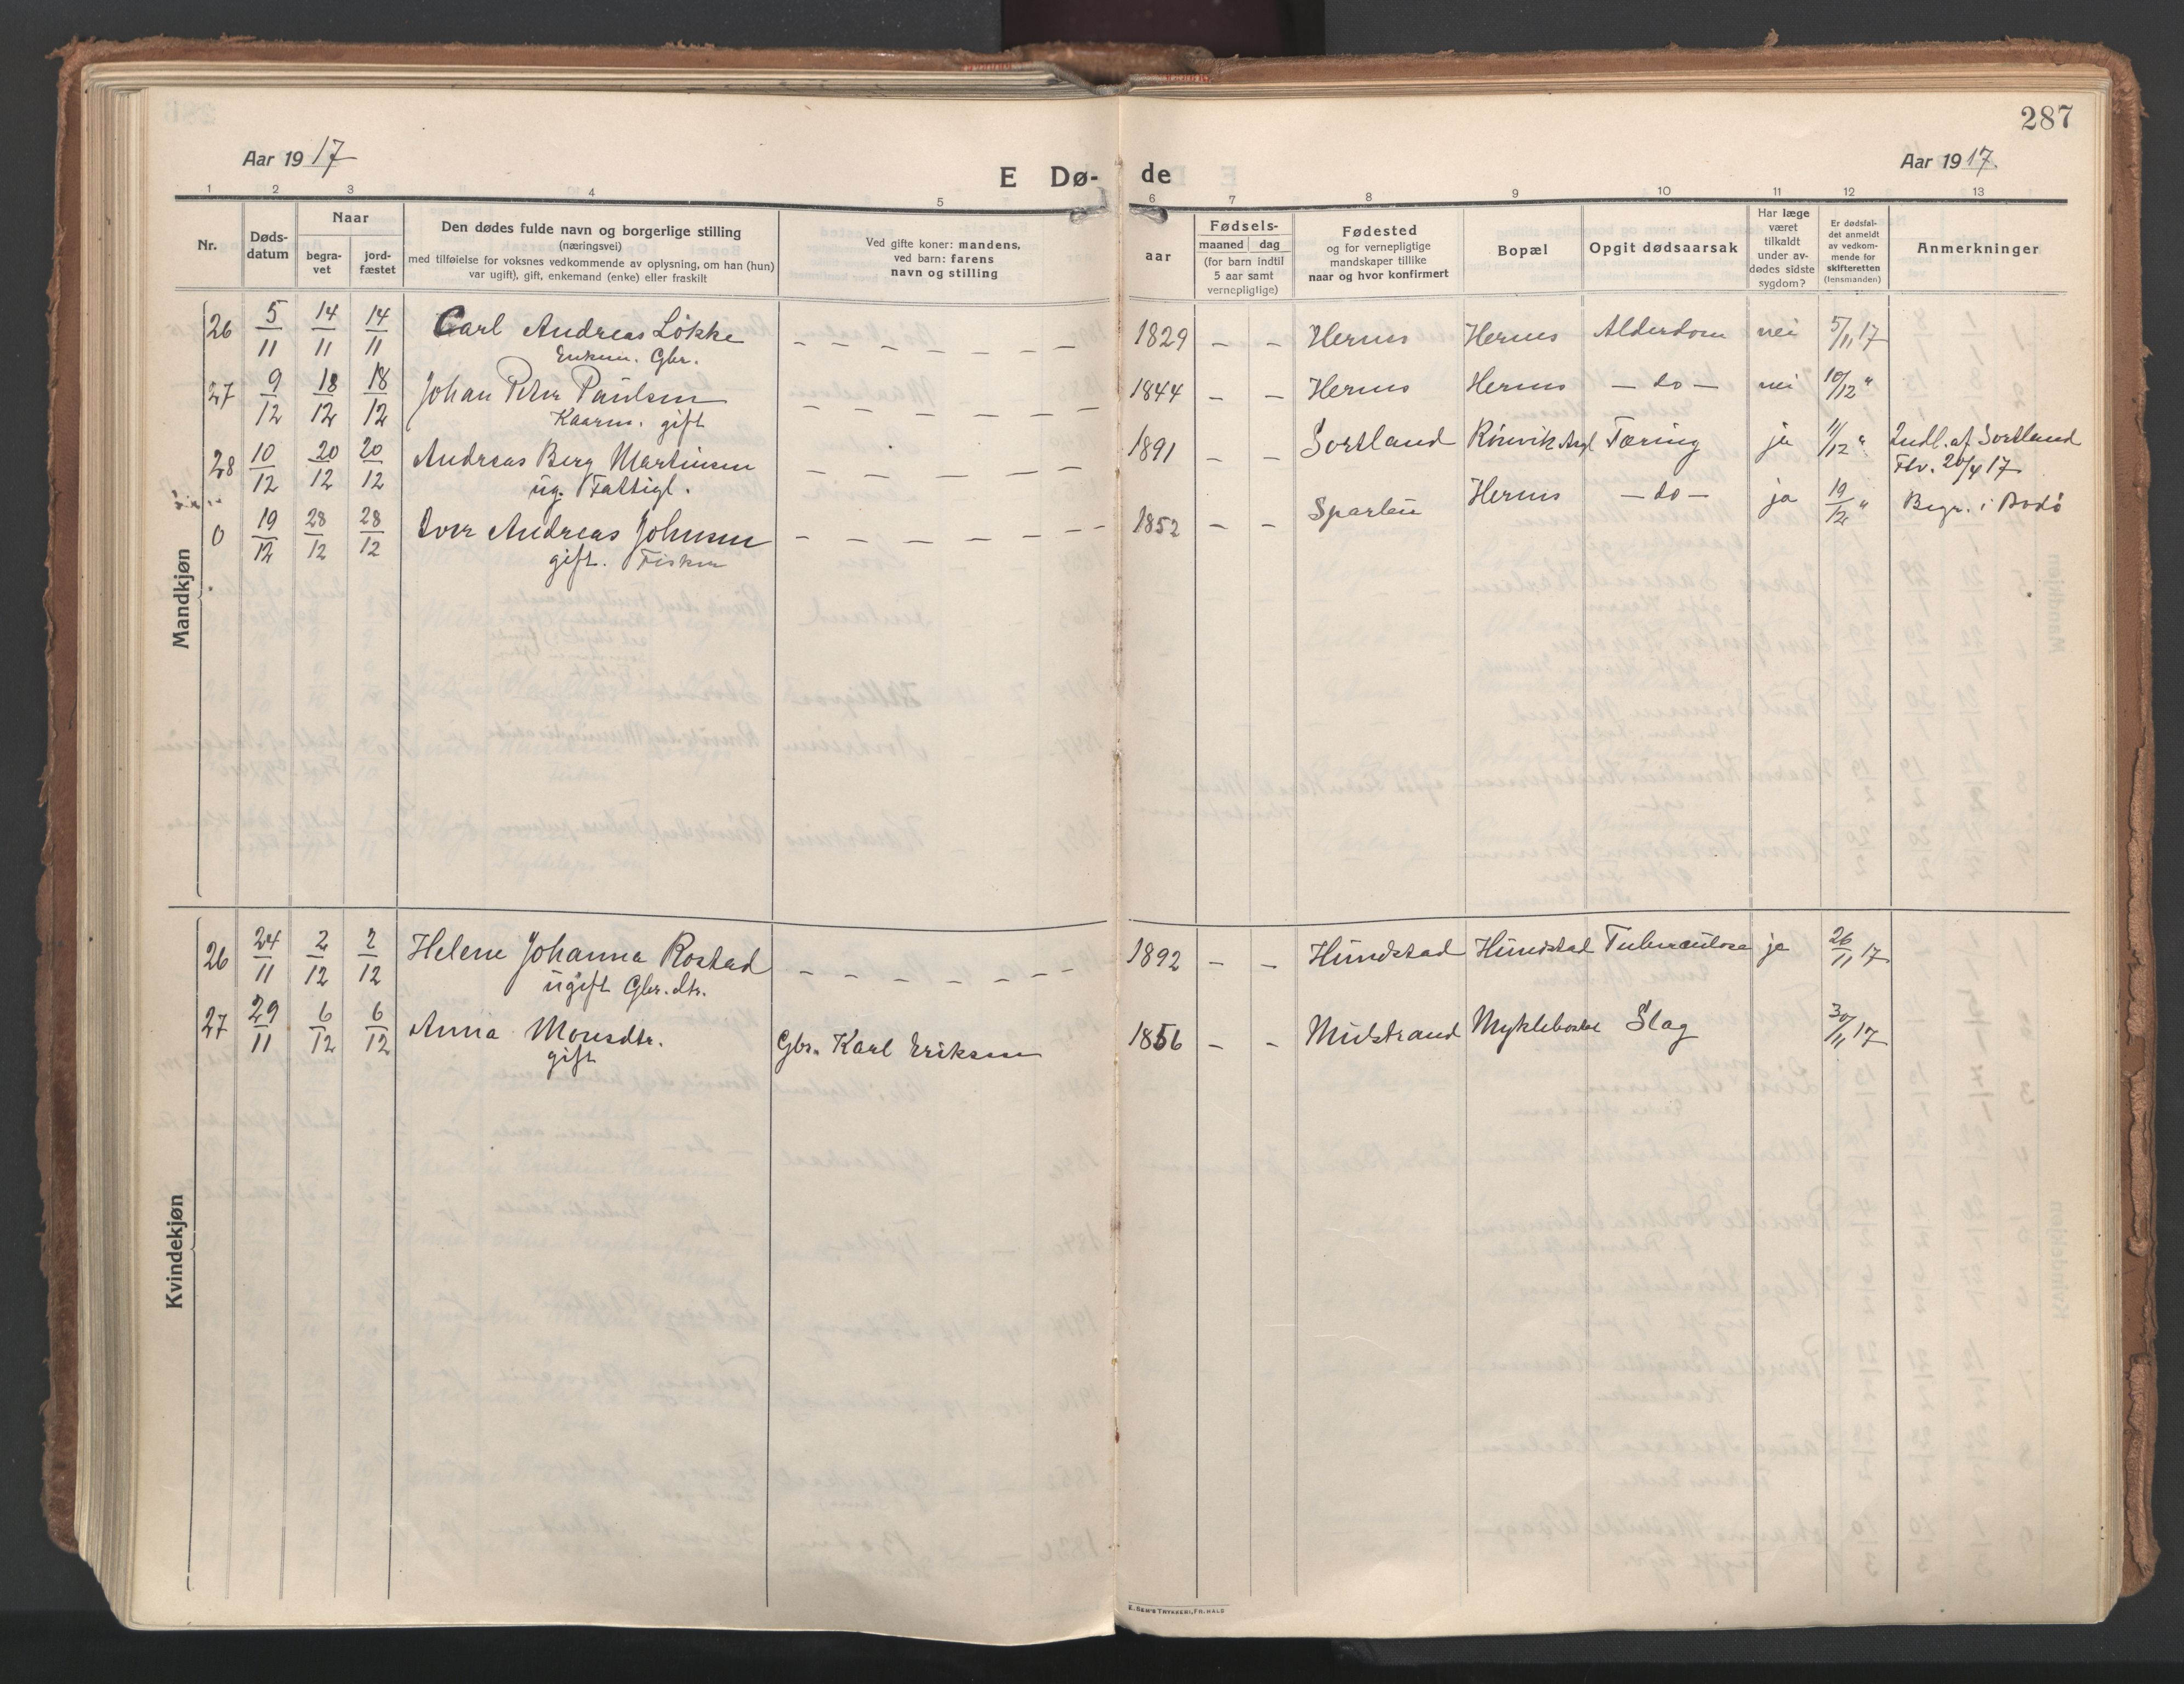 287
Aar 1917
E Dø-
de
Aar 1917.
1 2 3 4 5 6 7 8 9 10 11 12 13
Nr.
Døds-
datum
Naar
begra-
vet
jord-
fæstet
Den dødes fulde navn og borgerlige stilling
(næringsvei)
med tilføielse for voksnes vedkommende av oplysning, om han (hun)
var ugift), gift, enkemand (enke) eller fraskilt
Ved gifte koner: mandens,
ved barn: farens
navn og stilling
aar
Fødsels-
maaned dag
(for barn indtil
5 aar samt
vernepligtige)
Fødested
og for vernepligtige
mandskaper tillike
naar og hvor konfirmert
Bopæl
Opgit dødsaarsak
Har læge
været
tilkaldt
under av-
dødes sidste
sygdom?
Er dødsfal-
det anmeldt
av vedkom-
mende for
skifteretten
(lensmanden)
Anmerkninger
Mandkjøn
26 5/11 14/11 14/11 Carl Andreas Løkke – – – – – – – 1829 – – Hernes Hernes Alderdom nei 5/11 17
Enkem. Gbr.
27 9/12 18/12 18/12 Johan Peter Paulsen – – – – – – – 1844 – – Hernes Hernes – do – nei 10/12 "
Kaarm. gift
28 10/12 20/12 20/12 Andreas Berg Martinsen – – – – – 1891 – – Sortland Rönvik Asyl Tæring ja 11/12 " Indl. af Sortland
ug. Fattigl. Ftv. 26/4 17
0 19/12 28/12 28/12 Iver Andreas Johnsen – – – – – – – – 1852 – – Hernes – do – ja 19/12 " Begr. i Bodö
gift. Fisker
Kvindekjøn
26 24/11 2/12 2/12 Helene Johanna Rostad – – – – – – – 1892 – – Hundstad Hundstad Tuberculose ja 26/11 17
ugift Gbr. dtr.
27 29/11 6/12 6/12 Anna Monsdtr. Gbr. Karl Eriksen 1856 – – Midstrand Myklebostad Slag 30/11 17
gift
E. SEM'S TRYKKERI, FR.HALD